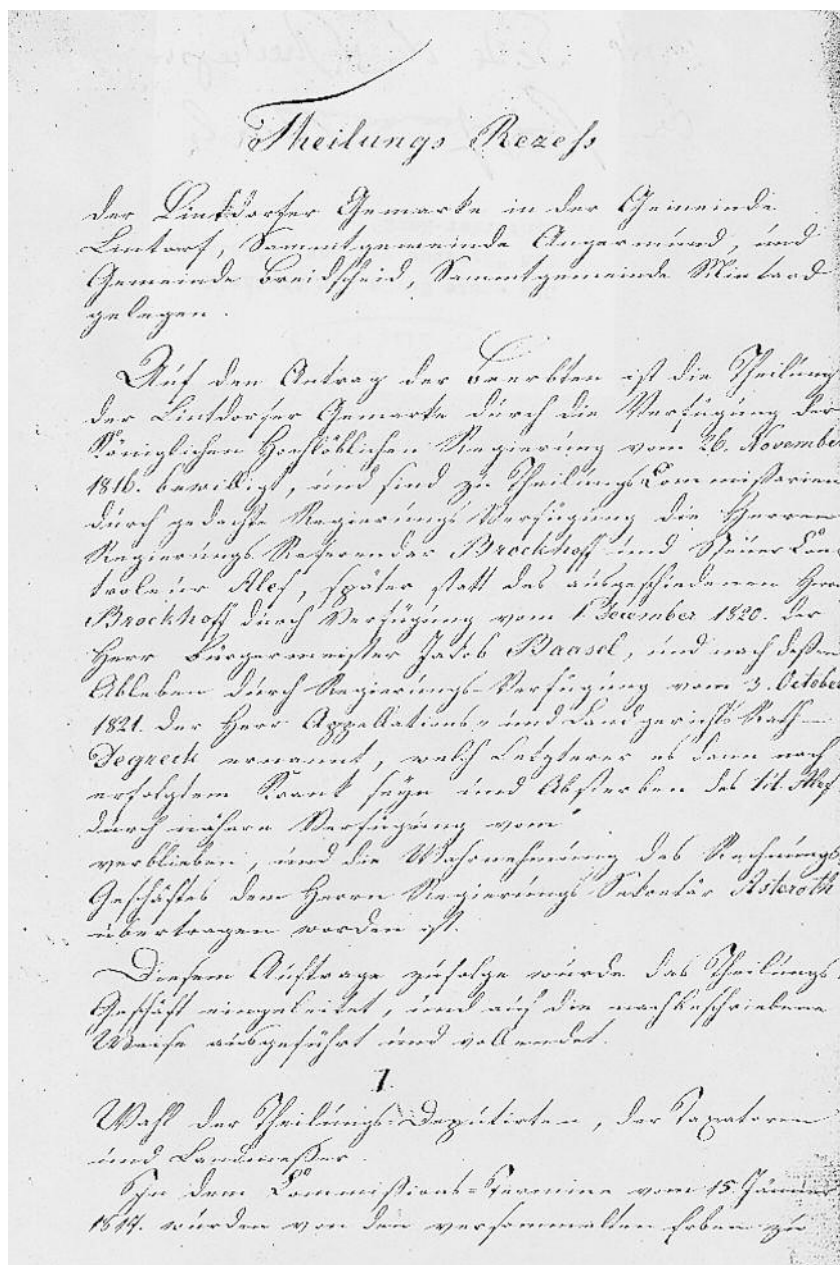 Theilungs Rezess
der Lintdorfer Gemarke in der Gemeinde
Lintorf, Sammtgemeinde Angermund, und
Gemeinde Breidscheid, Sammtgemeinde Mintard
gelegen.
Auf den Antrag der Beerbten ist die Theilung
der Lintdorfer Gemarke durch die Verfügung der
Königlichen Hochlöblichen Regierung vom 26. November
1816. bewilligt, und sind zu Theilungs Commissarien
durch gedachte Regierungs Verfügung die Herren
Regierungs Referendar Brockhoff und Steuer Con-
troleur Alef, später statt des ausgeschiedenen Herrn
Brockhoff durch Verfügung vom 1. December 1820. der
Herr Bürgermeister Jakob Baasel, und nach dessen
Ableben durch Regierungs-Verfügung vom 3. October
1821. der Herr Appellations- und Landgerichts Rath
Degreck ernannt, welch Letzterer es dann nach
erfolgtem Krank seyn und Absterben des tit. Alef
durch nähere Verfügung vom
verblieben, und die Wahrnehmung des Rechnungs
Geschäftes dem Herrn Regierungs Sekretär Asteroth
übertragen worden ist.
Diesem Auftrage zufolge wurde das Theilungs
Geschäft eingeleitet, und auf die nachbeschriebene
Weise ausgeführt und vollendet.
1.
Wahl der Theilungs-Deputirten, der Taxatoren
und Landmesser.
In dem Commissions-Termine vom 15. Jänner
1817. wurden von den versammelten Erben zu